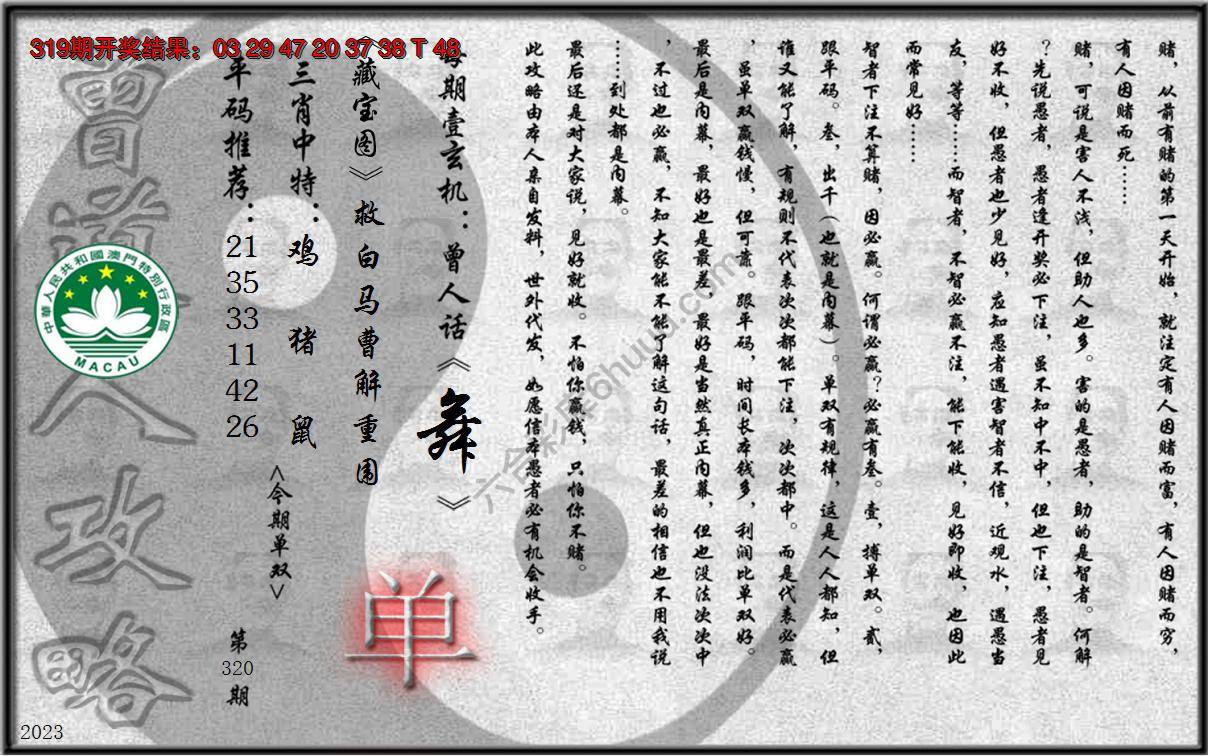 319期开奖结果：03 29 47 20 37 38 T 48
赌，从前有赌的第一天开始，就注定有人因赌而富，有人因赌而穷，
有人因赌而死……
赌，可说是害人不浅，但助人也多。害的是愚者，助的是智者。何解
？先说愚者，愚者逢开奖必下注，虽不知中不中，但也下注，愚者见
好不收，但愚者也少见好，应知愚者遇害智者不信，近观水，遇愚当
友，等等……而智者，不智必赢不注，能下能收，见好即收，也因此
而常见好……
智者下注不算赌，因必赢。何谓必赢？必赢有叁。壹，搏单双。贰，
跟平码。叁，出千（也就是内幕）。单双有规律，这是人人都知，但
谁又能了解，有规则不代表次次都能下注，次次都中。而是代表必赢
，虽单双赢钱慢，但可靠。跟平码，时间长本钱多，利润比单双好。
最后是内幕，最好也是最差，最好是当然真正内幕，但也没法次次中
，不过也必赢，不知大家能不能了解这句话，最差的相信也不用我说
……到处都是内幕。
最后还是对大家说，见好就收。不怕你赢钱，只怕你不赌。
此攻略由本人亲自发料，世外代发，如愿信本愚者必有机会收手。
每期壹玄机：曾人话《舞》
《藏宝图》救白马曹解重围
三肖中特：鸡 猪 鼠
平码推荐：21 35 33 11 42 26
<今期单双>
单
第320期
曾道人攻略
中華人民共和國澳門特別行政區
MACAU
2023